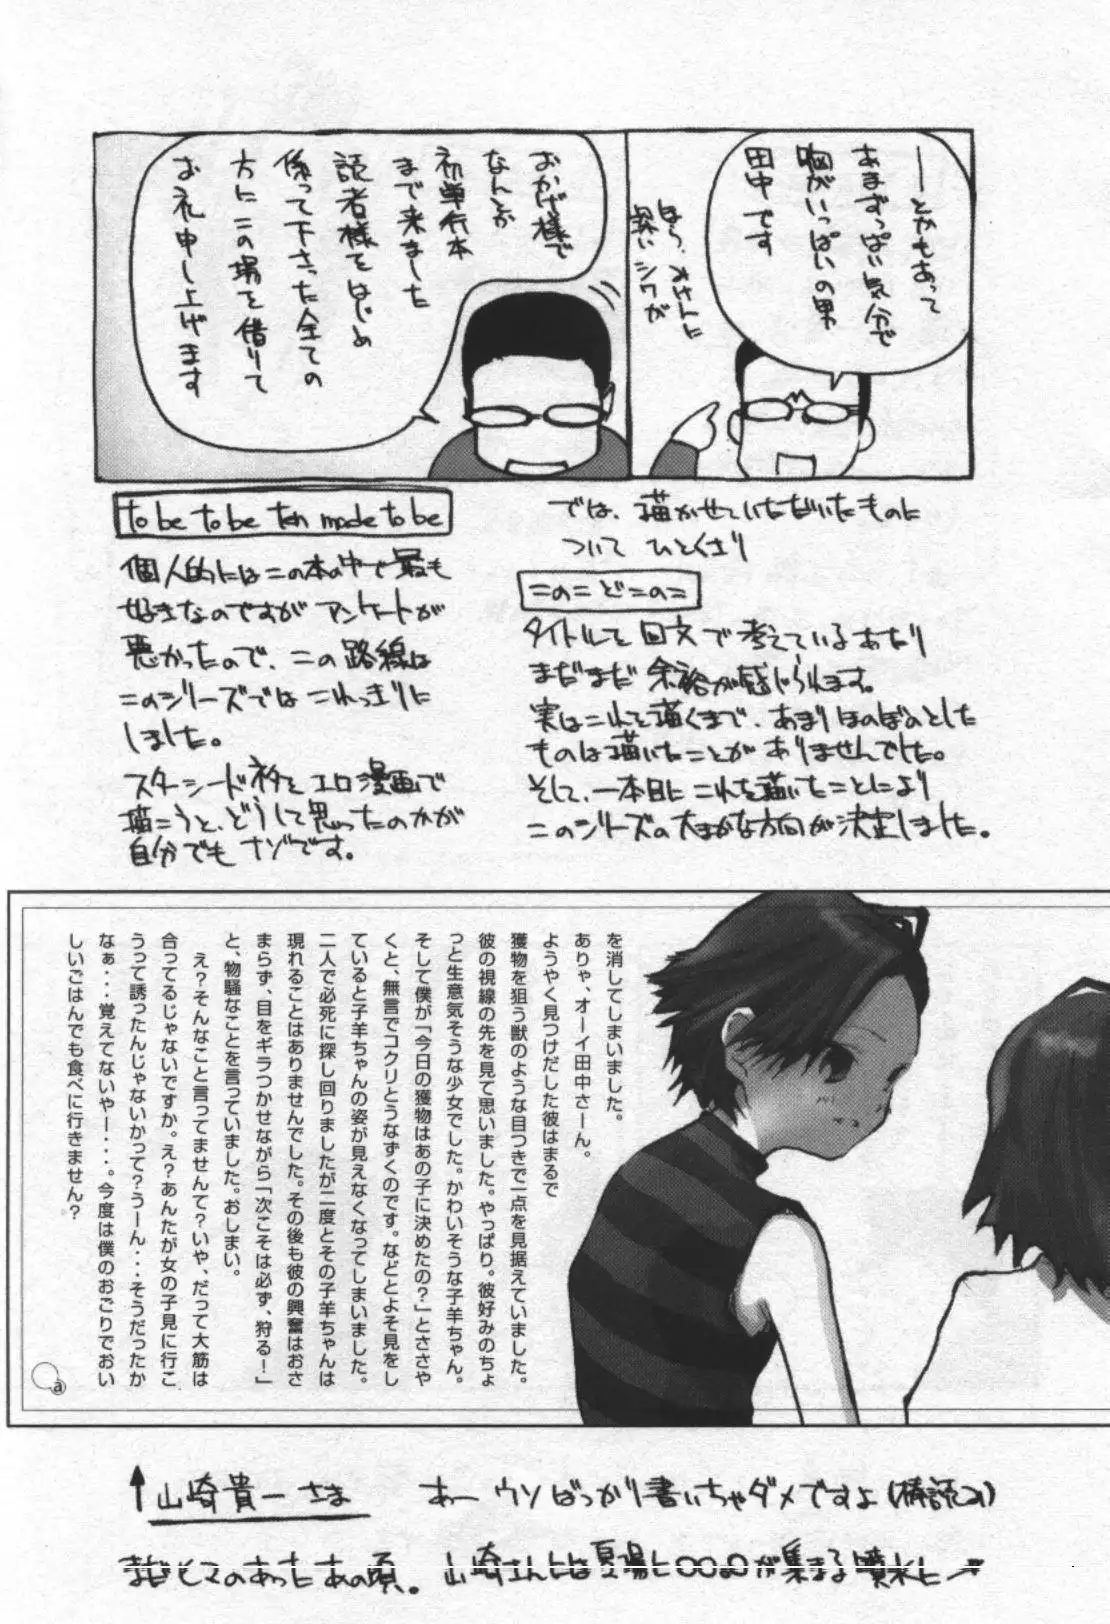 ―とかもあって
あまずっぱい気分で
胸がいっぱいの男
田中です
ほら、オナトに
深いシワが
おかげ様で
なんとか
初単行本
まで来ました
読者様をはじめ
係って下さった全ての
方にこの場を借りて
お礼申し上げます
では、描かせていただいたものに
ついて ひとくさり
このこどこのこ
タイトルを回文で考えているあたり
まだまだ余裕が感じられます。
実はこれを描くまで、あまりほのぼのとした
ものは描いたことがありませんでした。
そして、一本目にこれを描いたことにより
このシリーズの大まかな方向が決定しました。
to be to be ten made to be
個人的にはこの本の中で最も
好きなのですがアンケートが
悪かったので、この路線は
このシリーズではこれっきりに
しました。
スターシードネタをエロ漫画で
描こうと、どうして思ったのかが
自分でもナゾです。
を消してしまいました。
ありゃ、オーイ田中さーん。
ようやく見つけだした彼はまるで
獲物を狙う獣のような目つきで一点を見据えていました。
彼の視線の先を見て思いました。やっぱり。彼好みのちょ
っと生意気そうな少女でした。かわいそうな子羊ちゃん。
そして僕が「今日の獲物はあの子に決めたの?」とささや
くと、無言でコクリとうなずくのです。などとよそ見をし
ていると子羊ちゃんの姿が見えなくなってしまいました。
二人で必死に探し回りましたが二度とその子羊ちゃんは
現れることはありませんでした。その後も彼の興奮はおさ
まらず、目をギラつかせながら「次こそは必ず、狩る!」
と、物騒なことを言っていました。おしまい。
え?そんなこと言ってませんて?いや、だって大筋は
合ってるじゃないですか。え?あんたが女の子見に行こ
うって誘ったんじゃないかって?うーん・・・そうだったか
なぁ・・・覚えてないやー・・・。今度は僕のおごりでおい
しいごはんでも食べに行きません?
a
↑山崎貴一さま あー ウソばっかり書いちゃダメですよ(棒読み)
まだヒマのあったあの頃。山崎さんには夏場に〇〇〇〇が集まる噴水に